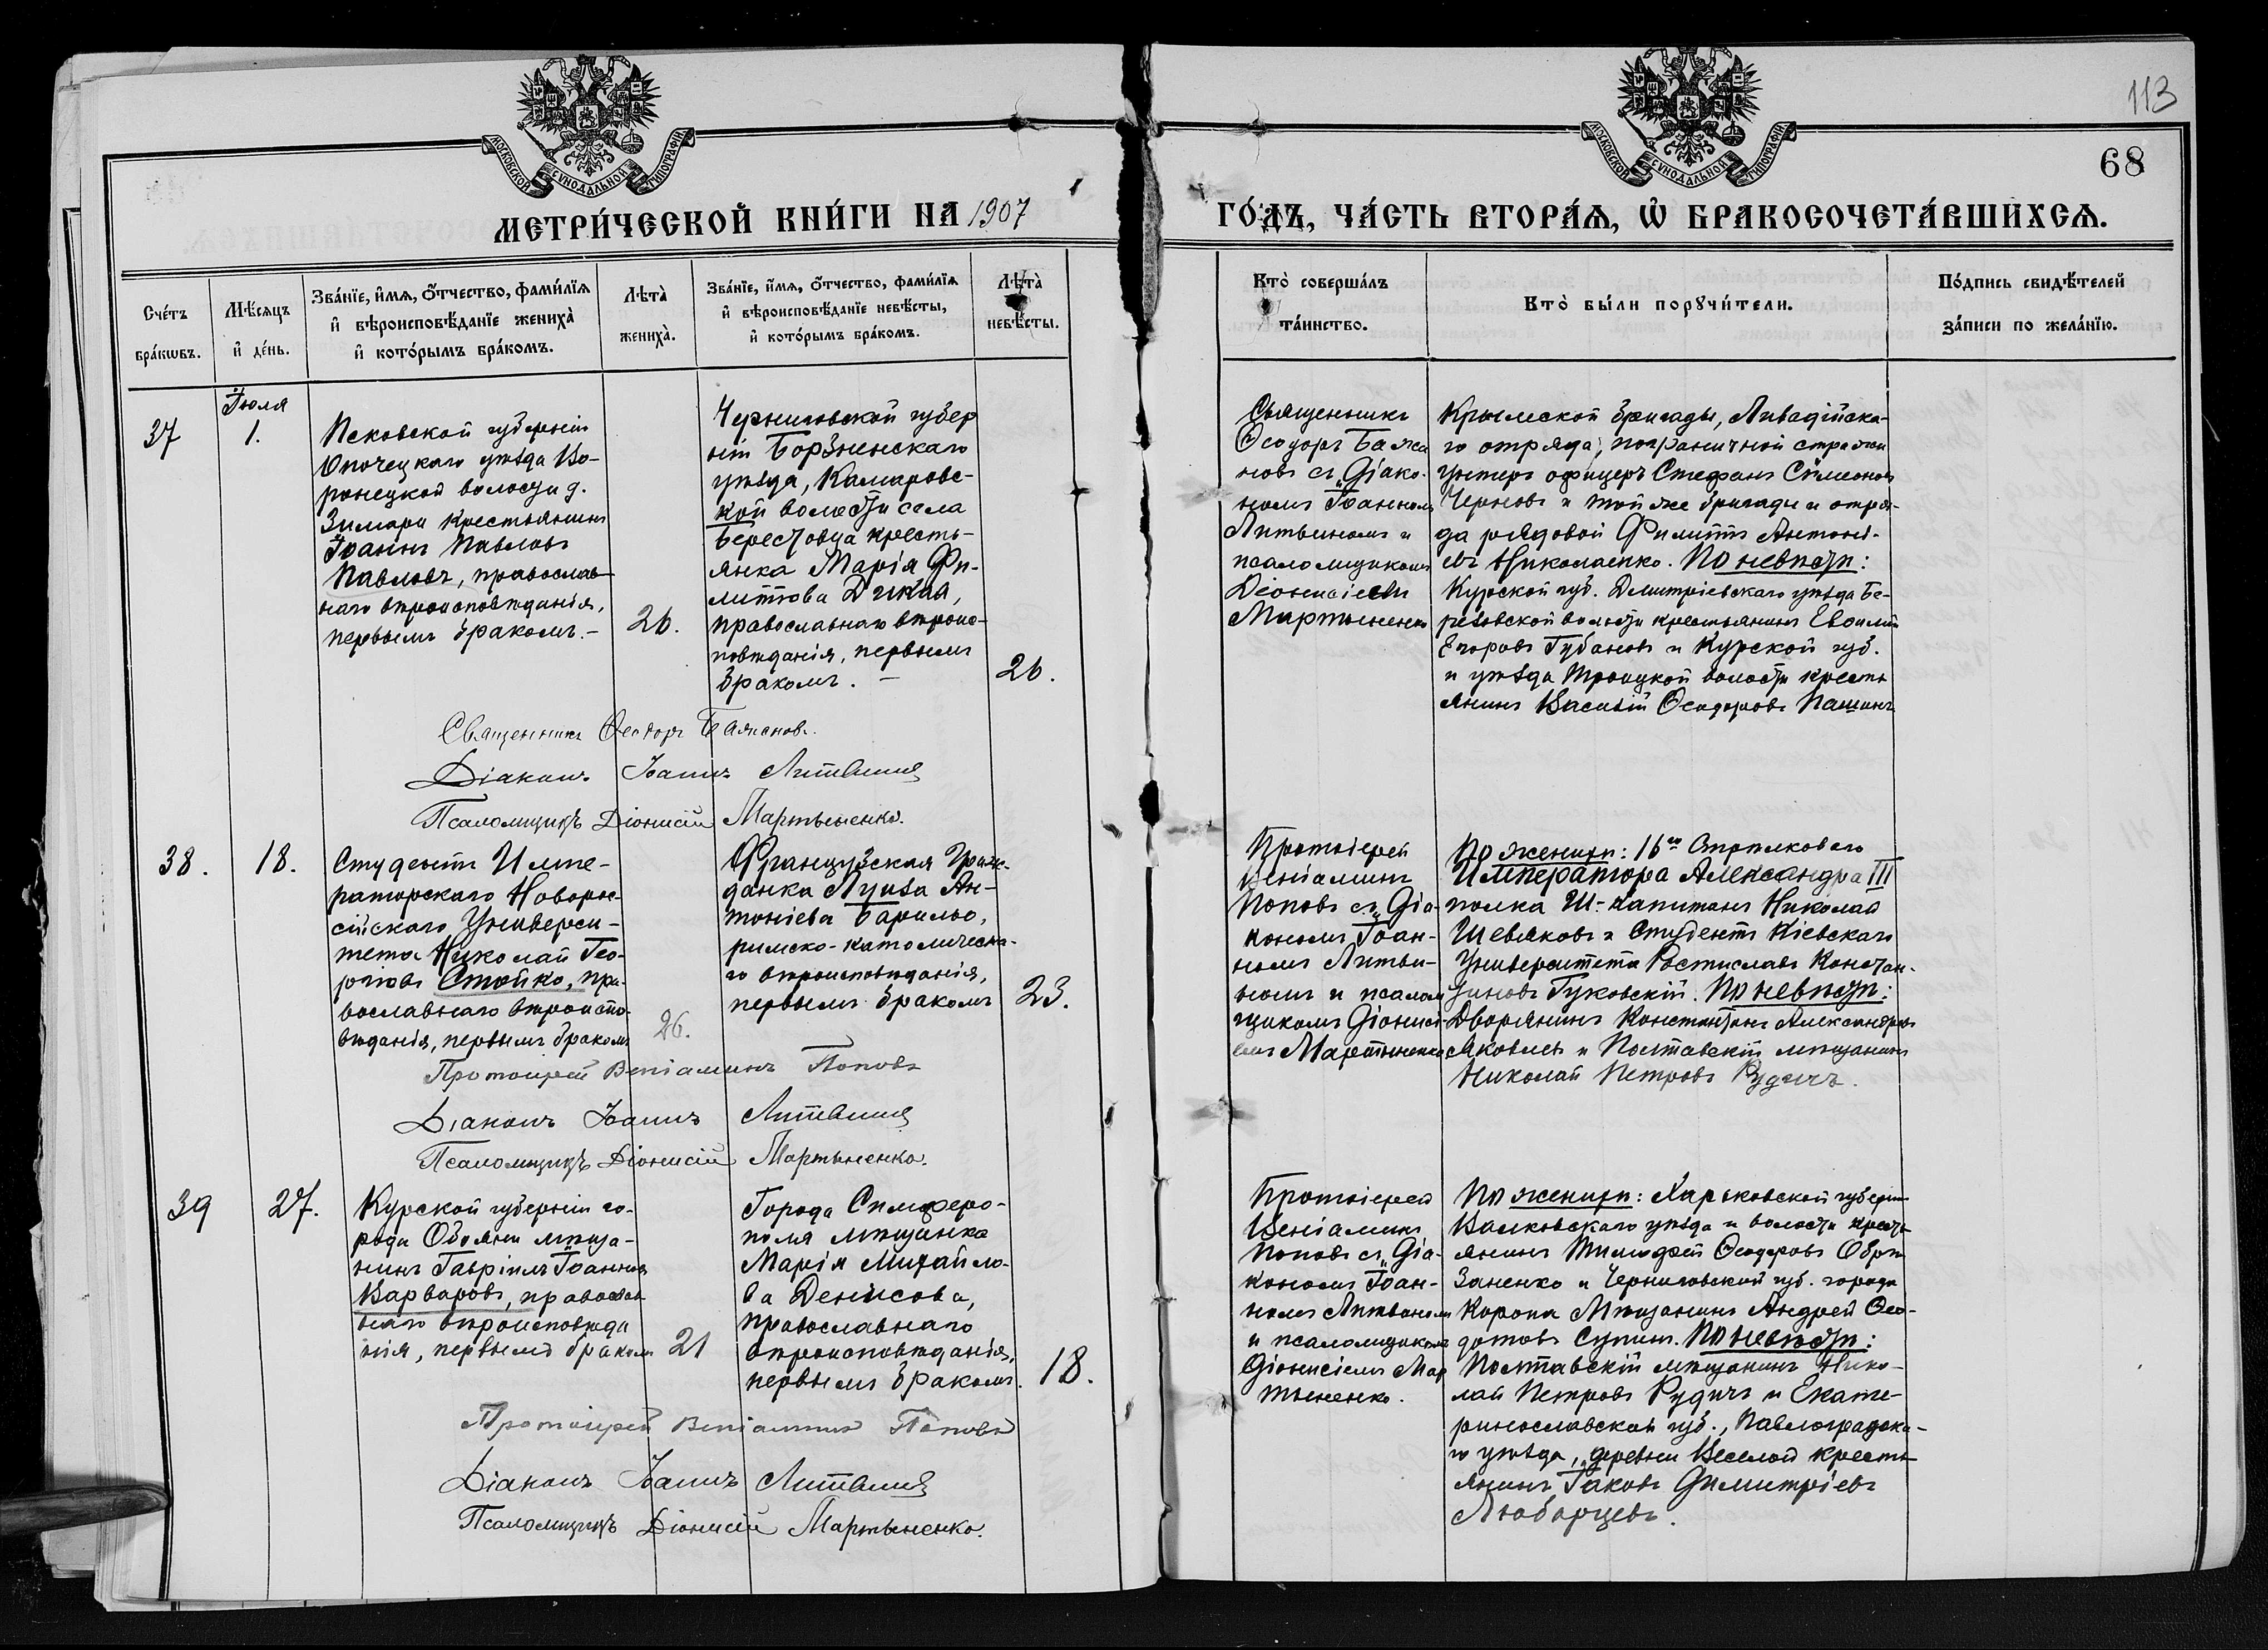 МОСКОВСКОЙ СѴНОДАЛЬНОЙ ТИПОГРАФІИ
МОСКОВСКОЙ СѴНОДАЛЬНОЙ ТИПОГРАФІИ
113
68
МЕТРИ́ЧЕСКОЙ КНИ́ГИ НА 1907
ГО́ДЪ, ЧА́СТЬ ВТОРА́Я, Ѡ҆ БРАКОСОЧЕТА́ВШИХСЯ.
Сче́тъ
бра́кѡвъ.
Мѣ́сяцъ
и҆ де́нь.
Зва́нїе, и҆́мя, ѻ҆́тчество, фами́лїя
и҆ вѣроисповѣ́данїе жениха̀
и҆ кото́рымъ бра́комъ.
Лѣта̀
жениха̀.
Зва́нїе, и҆́мя, ѻ҆́тчество, фами́лїя
и҆ вѣроисповѣ́данїе невѣ́сты,
и҆ кото́рымъ бра́комъ.
Лѣта̀
невѣ́сты.
Кто̀ соверша́лъ
та́инство.
Кто̀ бы́ли порꙋчи́тели.
По́дпись свидѣ́телей
за́писи по жела́нїю.
37
Іюля
1.
Псковской губерніи
Опочецкаго уѣзда Во-
ронецкой волости д.
Зимари крестьянинъ
Іоаннъ Павловъ
Павловъ, православ-
наго вѣроисповѣданія,
первымъ бракомъ.-
26.
Черниговской губер
ніи Борзненскаго
уѣзда, Камаровс-
кой волости села
Берестовца кресть-
янка Марія Фи-
липпова Дикая,
православнаго вѣроис-
повѣданія, первымъ
бракомъ. -
26.
Священникъ
Ѳеодоръ Бажа
новъ съ Діако-
номъ Іоанномъ
Литвиномъ и
псаломщикомъ
Діонисіемъ
Мартыненко
Крымской бригады, Ливадійска-
го отряда, пограничной стражи
унтеръ офицеръ Стефанъ Сѵмеоновъ
Черновъ и той же бригады и отря-
да рядовой Филиппъ Антоні-
евъ Николаенко. По невѣстѣ:
Курской губ. Дмитріевскаго уѣзда Бе-
резовской волости крестьянинъ Евѳимій
Егоровъ Губановъ и Курской губ.
и уѣзда Троицкой волости кресть
янинъ Василій Ѳеодоровъ Пашинъ
Священникъ Ѳеодоръ Бажановъ.
Діаконъ Іоаннъ Литвинъ
Псаломщикъ Діонисій Мартыненко.
38.
18.
Студентъ Импе-
раторскаго Новорос-
сійскаго Универси-
тета Николай Гео-
ргіевъ Стойко, пра-
вославнаго вѣроиспо-
вѣданія, первымъ бракомъ
26.
Французская Граж-
данка Луиза Ан-
тоніева Барильо,
римско-католическа-
го вѣроисповѣданія,
первымъ бракомъ
23.
Протоіерей
Веніаминъ
Поповъ съ Діа-
кономъ Іоан-
номъ Литви-
номъ и псалом
щикомъ Діонисі-
емъ Мартыненко
По жениху: 16го Стрѣлковаго
Императора Александра III
полка Ш.-Капитанъ Николай
Шевяковъ и Студентъ Кіевскаго
Университета Ростиславъ Констан-
тиновъ Гуковскій. По невѣстѣ:
Дворянинъ Константинъ Александровъ
Яковлевъ и Полтавскій мѣщанинъ
Николай Петровъ Рудичъ.
Протоіерей Веніаминъ Поповъ
Діаконъ Іоаннъ Литвинъ
Псаломщикъ Діонисій Мартыненко.
39
27.
Курской губерніи го-
рода Обояни мѣща-
нинъ Гавріилъ Іоанновъ
Варваровъ, православ
наго вѣроисповѣда
нія, первымъ бракомъ
21
Города Симферо-
поля мѣщанка
Марія Михайло-
ва Денисова,
православнаго
вѣроисповѣданія,
первымъ бракомъ.
18.
Протоіерей
Веніаминъ
Поповъ съ Діа-
кономъ Іоан-
номъ Литвиномъ
и псаломщикомъ
Діонисіемъ Мар
тыненко.
По жениху: Харьковской губерніи
Валковскаго уѣзда и волости кресть
янинъ Тимофей Ѳеодоровъ
и Черниговской губ. города
Коропа Мѣщанинъ Андрей Ѳео-
дотовъ Супинъ. По невѣстѣ:
Полтавскій мѣщанинъ Нико-
лай Петровъ Рудичъ и Екате-
ринославской губ., Павлоградска-
го уѣзда, деревни Веселой кресть
янинъ Іаковъ Димитріевъ
Люборцевъ.
Протоіерей Веніаминъ Поповъ
Діаконъ Іоаннъ Литвинъ
Псаломщикъ Діонисій Мартыненко.